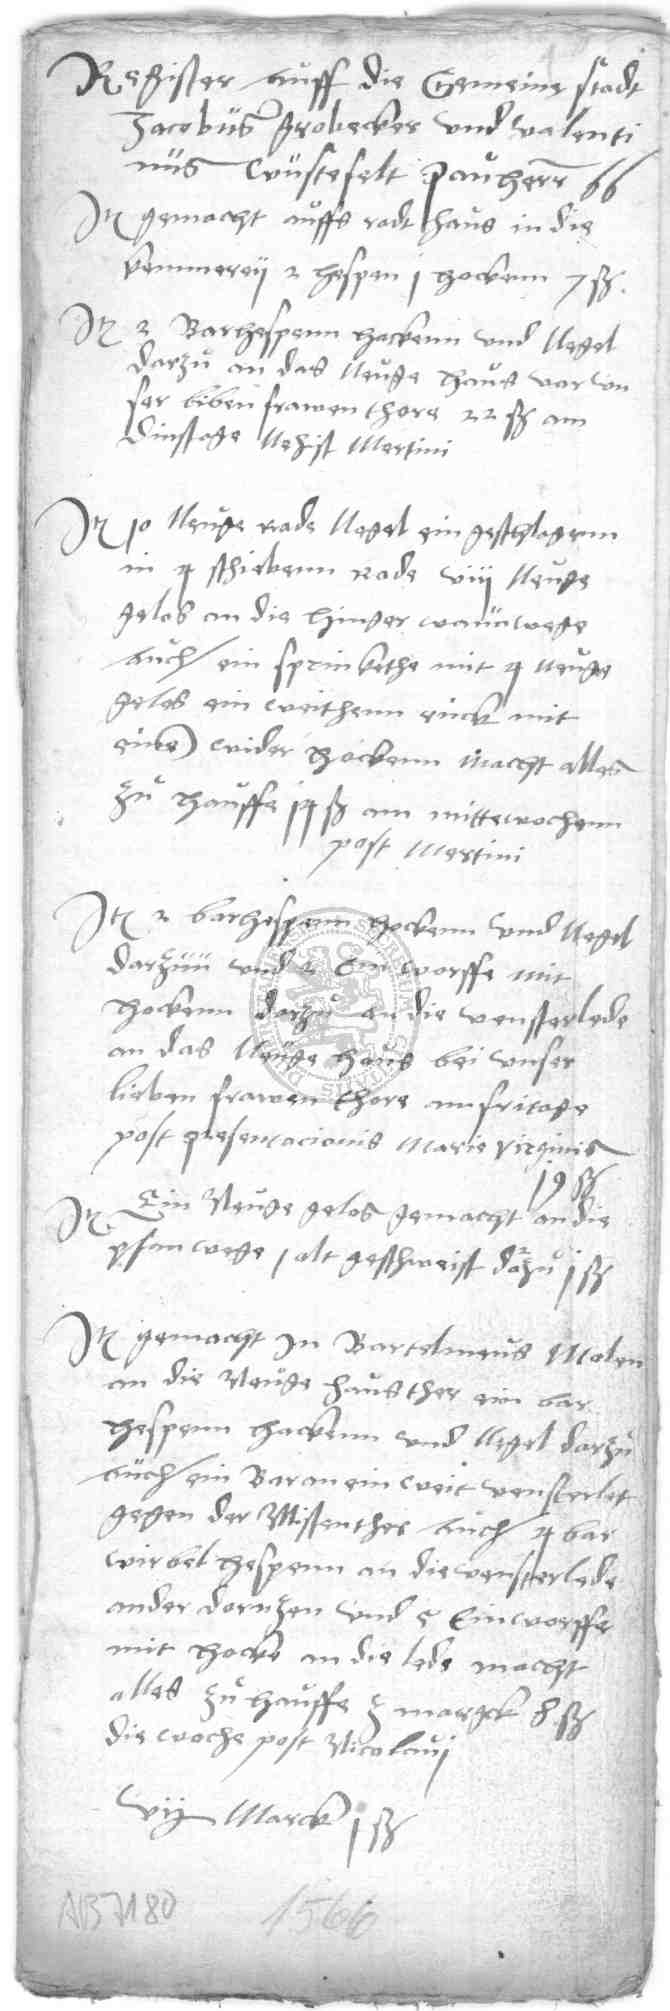 Register auff die Gemeine stadt
Jacobus Grobecker und valenti
nus Wustefelt pauherr 66
It gemacht auffs radt haus in die
kemmereij 2 hespen j hockenn 7 ß.
It 2 Barhespenn hackenn und Negel
darzu an das Neuge haus vor un
ser liben frawen thore 22 ß am
dinstage Nehist Mertini
It 10 Neuge rade Negel ein geschlagenn
in 4 schiebenn rade viij Neuge
gelos an die hinger wege
auch ein mit 4 neuge
geles ein weithenn ruck mit
eine wider hockenn macht alles
zu hauffe j4 ß am mittewochenn
post Mertini
It 2 barhespenn hockenn und Negel
darzuu und 2 Ein worffe mit
hockenn darzu an die vensterlede
an das Neuge haus bei unser
lieben frawen thore am fritage
post presentacionis Marie virginis
j9 ß
It Ein Neuge gelos gemacht an die
pfanwege j alt geschweist dozu j ß
It gemacht In Bartelmeus Molen
an die Neuge hausther ein bar
hespenn hackenn und Negel darzu
auch ein Bar an ein weit vensterlet
gegen der Mistenther auch 4 bar
wirbel hespenn an die vensterlede
an der dorntzen und 5 Einworffe
mit hocke an die lede macht
alles zu hauffe 3 margk 8 ß
die woche post Nicolauj
vij Marck j ß
AB 7180
1566